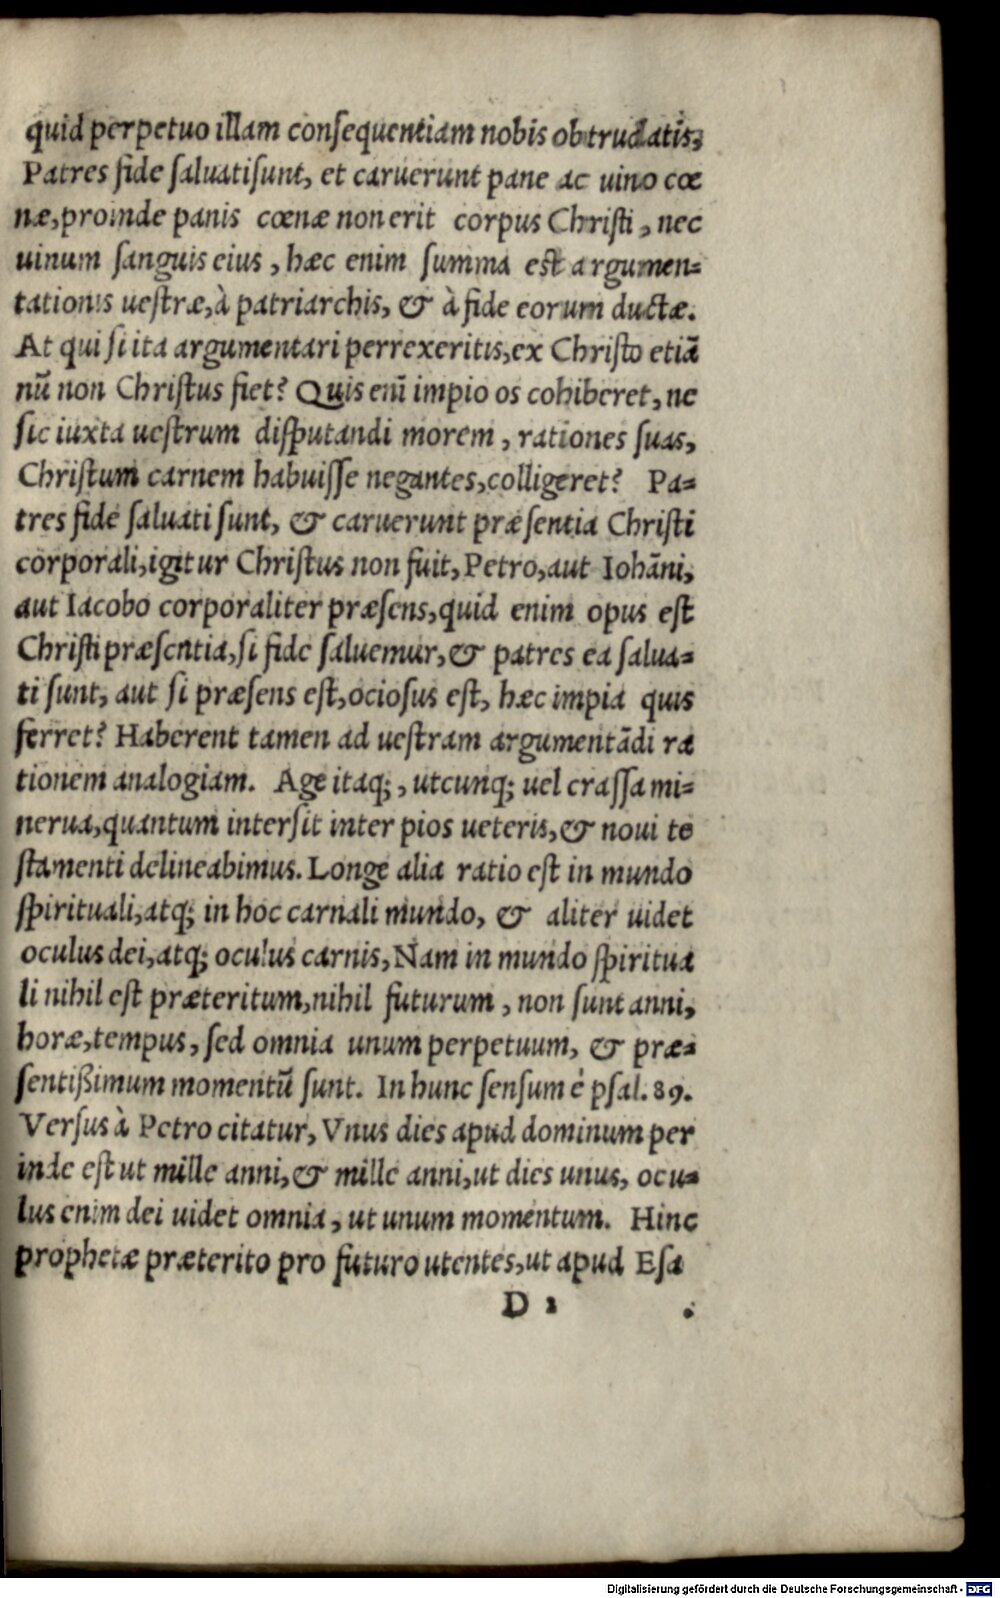 quid perpetuo illam consequentiam nobis obtrudatis,
Patres fide saluati sunt, et caruerunt pane ac uino cœ
næ, proinde panis cœnæ non erit corpus Christi, nec
uinum sanguis eius, hæc enim summa est argumen=
tationis uestræ, à patriarchis, & à fide eorum ductæ.
At qui si ita argumentari perrexeritis, ex Christo etiã
nũ non Christus fiet? Quis enĩ impio os cohiberet, ne
sic iuxta uestrum disputandi morem, rationes suas,
Christum carnem habuisse negantes, colligeret? Pa=
tres fide saluati sunt, & caruerunt præsentia Christi
corporali, igitur Christus non fuit, Petro, aut Iohãni,
aut Iacobo corporaliter præsens, quid enim opus est
Christi præsentia, si fide saluemur, & patres ea salua=
ti sunt, aut si præsens est, ociosus est, hæc impia quis
ferret? Haberent tamen ad uestram argumentãdi ra
tionem analogiam. Age itaq;, utcunq; uel crassa mi=
nerua, quantum intersit inter pios ueteris, & noui te
stamenti delineabimus. Longe alia ratio est in mundo
spirituali, atq; in hoc carnali mundo, & aliter uidet
oculus dei, atq; oculus carnis, Nam in mundo spiritua
li nihil est præteritum, nihil futurum, non sunt anni,
horæ, tempus, sed omnia unum perpetuum, & præ=
sentißimum momentũ sunt. In hunc sensum è psal. 89.
Versus à Petro citatur, Vnus dies apud dominum per
inde est ut mille anni, & mille anni, ut dies unus, ocu=
lus enim dei uidet omnia, ut unum momentum. Hinc
prophetæ præterito pro futuro utentes, ut apud Esa
D 2
Digitalisierung gefördert durch die Deutsche Forschungsgemeinschaft - DFG